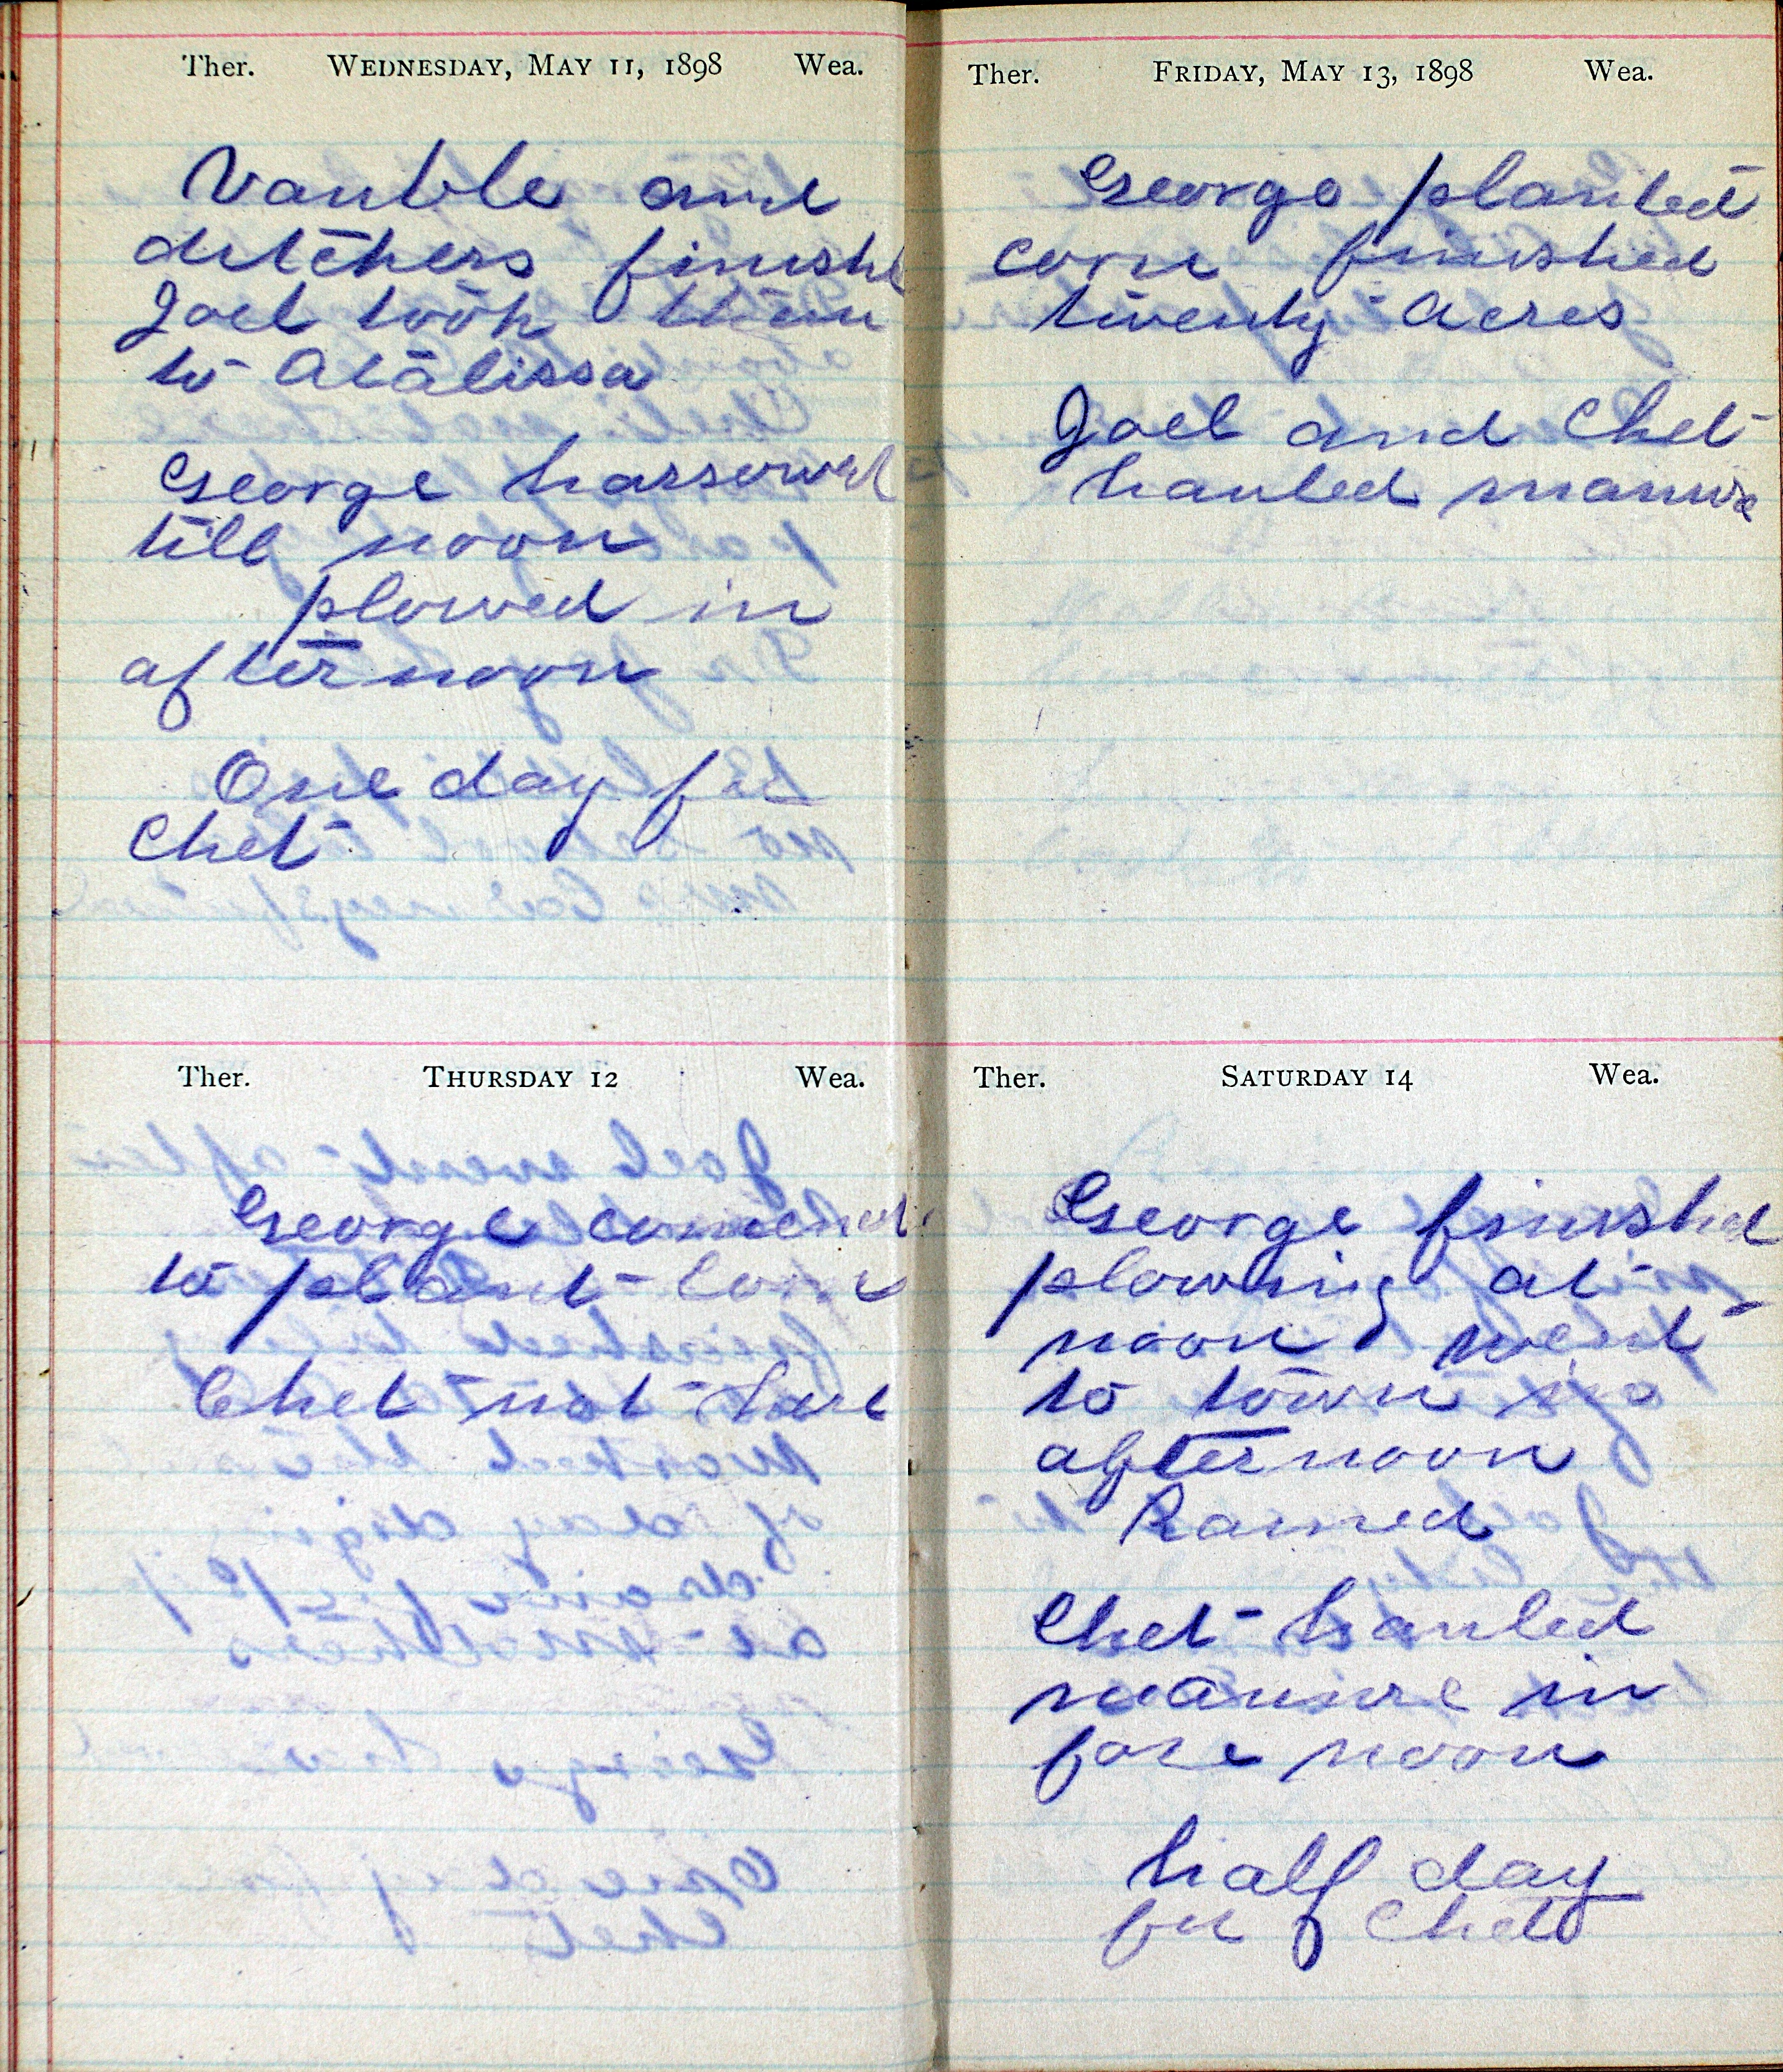 Ther. WEDNESDAY, MAY 11, 1898 Wea.
Vauble and
ditchers finishd
Joel took them
to Atalissa
George harrowed
till noon
plowed in
afternoon
One day for
Chet
Ther. THURSDAY 12 Wea.
George comencd
to plant corn
Chet not here
Ther. FRIDAY, MAY 13, 1898 Wea.
George planted
corn finished
twenty acres
Joel and Chet
hauled manure
Ther. SATURDAY 14 Wea.
George finished
plowing at
noon went
to town in
afternoon
Rained
Chet hauled
manure in
fore noon
half day
for Chet